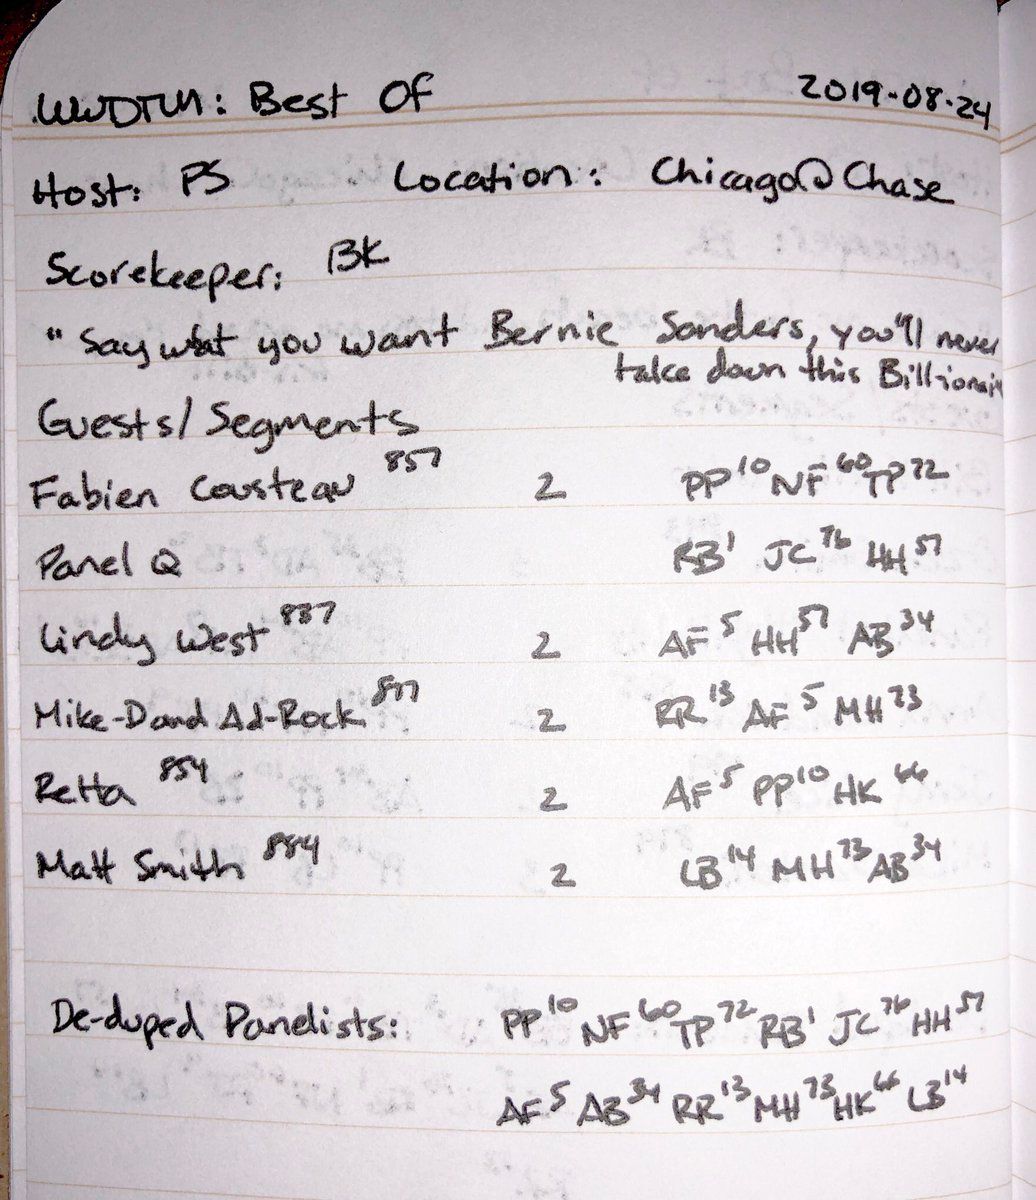 WWDTM: Best Of 2019-08-24
Host: PS Location: Chicago@Chase
Scorekeeper: BK
"Say what you want Bernie Sanders, you'll never
take down this Billionair
Guests/Segments
Fabien Cousteau 857 2 PP10 NF60 TP72
Panel Q RB1 JC76 HH57
Lindy West 837 2 AF5 HH57 AB34
Mike-D and Ad-Rock 2 RR13 AF5 MH73
Retta 854 2 AF5 PP10 HK66
Matt Smith 884 2 LB14 MH73 AB34
De-duped Panelists: PP10 NF60 TP72 RB1 JC76 HH57
AF5 AB34 RR13 MH73 HK66 LB14